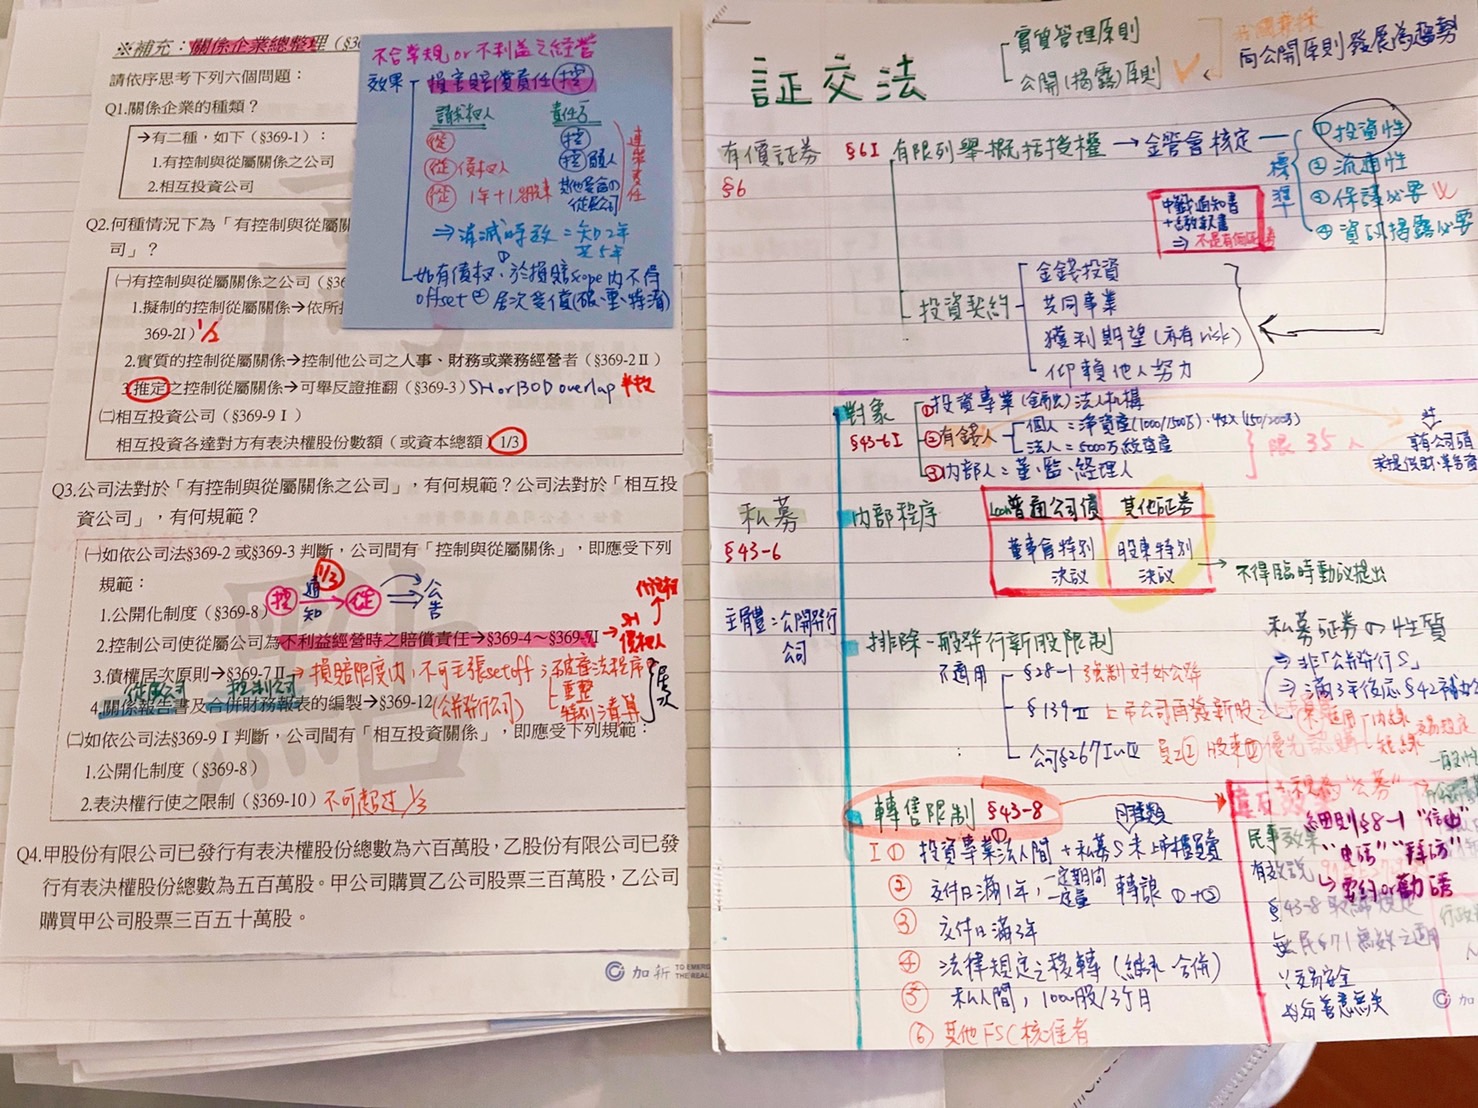 ※補充：關係企業總整理（§36
請依序思考下列六個問題：
Q1.關係企業的種類？
→有二種，如下（§369-1）：
1.有控制與從屬關係之公司
2.相互投資公司
Q2.何種情況下為「有控制與從屬關
司」？
㈠有控制與從屬關係之公司（§36
1.擬制的控制從屬關係→依所持
369-2I）1/2
2.實質的控制從屬關係→控制他公司之人事、財務或業務經營者（§369-2Ⅱ）
3.推定之控制從屬關係→可舉反證推翻（§369-3）SH or BOD overlap 半数
㈡相互投資公司（§369-9Ⅰ）
相互投資各達對方有表決權股份數額（或資本總額）1/3
Q3.公司法對於「有控制與從屬關係之公司」，有何規範？公司法對於「相互投
資公司」，有何規範？
㈠如依公司法§369-2 或§369-3 判斷，公司間有「控制與從屬關係」，即應受下列
規範：
1.公開化制度（§369-8）控 通知 1/3 從 公告
2.控制公司使從屬公司為不利益經營時之賠償責任→§369-4～§369-7I → SH 債權人
3.債權居次原則→§369-7Ⅱ→損賠限度內，不可主張setoff；破產法程序 重整 特別清算 居次
從屬公司 控制公司
4.關係報告書及合併財務報表的編製→§369-12(公開發行公司)
㈡如依公司法§369-9Ⅰ判斷，公司間有「相互投資關係」，即應受下列規範：
1.公開化制度（§369-8）
2.表決權行使之限制（§369-10）不可超过 1/3
Q4.甲股份有限公司已發行有表決權股份總數為六百萬股，乙股份有限公司已發
行有表決權股份總數為五百萬股。甲公司購買乙公司股票三百萬股，乙公司
購買甲公司股票三百五十萬股。
加新 TO EMER
THE REAL
不合常規 or 不利益之經營
效果 損害賠償責任 控
請求权人 責任方
從 控
從 債权人 控 負責人
從 1年+1%股東 其他受益の從屬公司
連帶責任
⇒消滅時效=知2年
至5年
如有債权，①於損賠scope內不得
offset ②居次受償(破、重、特清)
証交法
實質管理原則
公開(揭露)原則
向公開原則發展為趨勢
有價証券 §6I 有限列舉概括授權→金管會核定
§6
標準
①投資性
②流通性
③保護必要
④資訊揭露必要
中籤通知書
⇒不是有価証券
投資契約
金錢投資
共同事業
獲利期望(亦有risk)
仰賴他人努力
對象
§43-6I
①投資專業(金融)法人机構
②有錢人
個人=淨資產(1000/1500万)
法人=5000万總資產
③內部人=董、監、經理人
限35人
私募
§43-6
內部程序
普通公司債 其他証券
董事會特別決議 股東特別決議
→不得臨時動議提出
主體=公開發行
公司
排除一般發行新股限制
不適用
§28-1 強制對外公開
§139Ⅱ 上市公司再發新股
公司§267
私募証券の性質
⇒非「公開發行S」
轉售限制 §43-8
I ① 投資專業法人間+私募S未上市櫃買賣
② 交付日滿1年，一定期間 一定量 轉讓
③ 交付日滿3年
④ 法律規定之移轉(繼承、合併)
⑤ 私人間，1000股/3个月
⑥ 其他FSC核准者
民事效果
有效說
細則§8-1 "信函"
"電話" "拜訪"
要約or勸誘
民§71
交易安全
善意無失
加